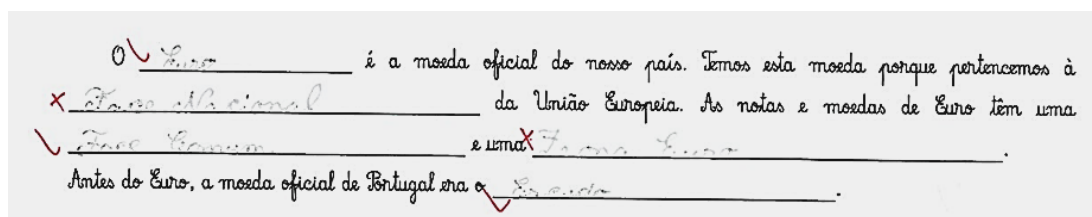 O Euro é a moeda oficial do nosso país. Temos esta moeda porque pertencemos à
Face Nacional da União Europeia. As notas e moedas de Euro têm uma
Face Comum e uma Zona Euro.
Antes do Euro, a moeda oficial de Portugal era o Escudo.